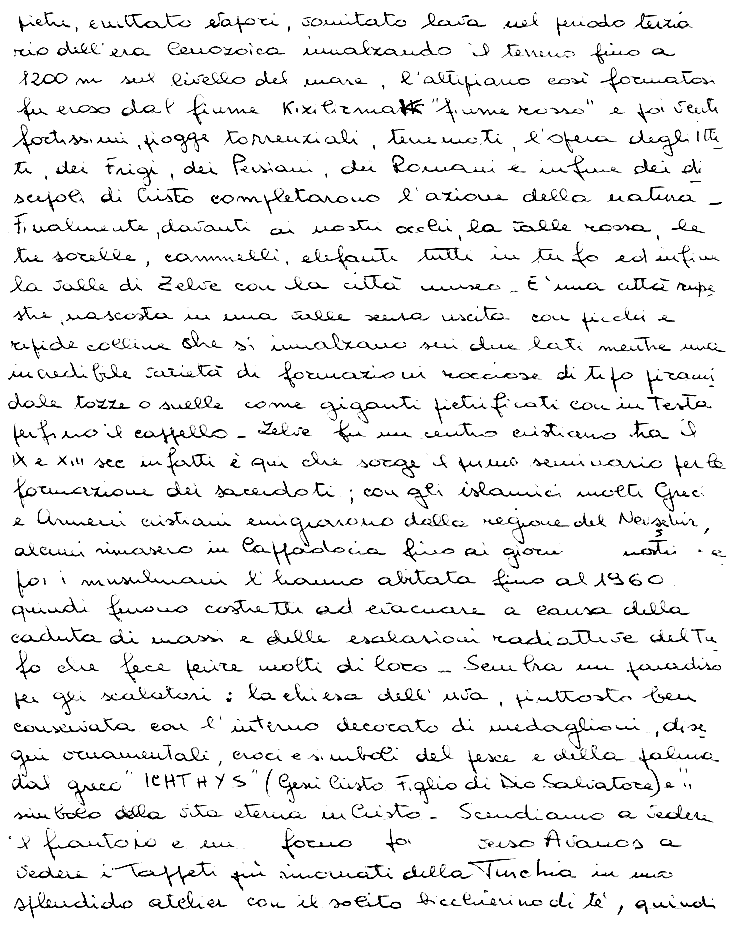 pietre, emittato vapori, vomitato lava nel periodo terzia
rio dell'era Cenozoica innalzando il terreno fino a
1200 m sul livello del mare, l'altipiano così formatosi
fu eroso dal fiume Kizilirmak "fiume rosso" e poi venti
fortissimi, piogge torrenziali, terremoti, l'opera degli Itti
ti, dei Frigi, dei Persiani, dei Romani e infine dei di
scepoli di Cristo completarono l'azione della natura _
Finalmente, davanti ai nostri occhi, la valle rossa, le
tre sorelle, cammelli, elefanti tutti in tufo ed infine
la valle di Zelve con la città museo _ E' una città rupe
stre, nascosta in una valle senza uscita con picchi e
ripide colline che si innalzano sui due lati mentre una
incredibile varietà di formazioni rocciose di tipo pirami
dale tozze o snelle come giganti pietrificati con in testa
perfino il cappello _ Zelve fu un centro cristiano tra il
IX e XIII sec infatti è qui che sorge il primo seminario per la
formazione dei sacerdoti; con gli islamici molti Greci
e Armeni cristiani emigrarono dalla regione del Nevsehir,
alcuni rimasero in Cappadocia fino ai giorni nostri e
poi i musulmani l'hanno abitata fino al 1960
quindi furono costretti ad evacuare a causa della
caduta di massi e delle esalazioni radiattive del Tu
fo che fece perire molti di loro _ Sembra un paradiso
per gli scalatori: la chiesa dell'uva, piuttosto ben
conservata con l'interno decorato di medaglioni, dise
gni ornamentali, croci e simboli del pesce e della palma
dal greco "ICHTHYS" (Gesù Cristo Figlio di Dio Salvatore) e "
simbolo della vita eterna in Cristo _ Scendiamo a vedere
il frantoio e un forno poi verso Avanos a
vedere i Tappeti più rinomati della Turchia in uno
splendido atelier con il solito bicchierino di tè, quindi